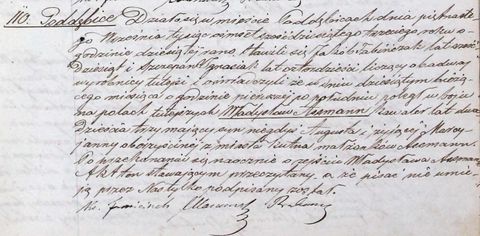 110. Poddębice Działo się w mieście Poddębicach dnia piętnaste-
go Września tysiąc ośmset sześćdziesiątego trzeciego roku o
godzinie dziesiątej rano, stawili się Jakób lat sześć-
dziesiąt i Szczepan Ignasiak lat czterdzieści liczący obadwaj
wyrobnicy tutejsi i oznajmili że w dniu dziesiątym bieżą-
cego miesiąca o godzinie pierwszej po południu poległ w boju
na polach tutejszych Władysław Aesmann Kawaler lat dwa-
dzieścia trzy mający syn niegdyś Augusta i żyjącej Maryj-
janny obojczystniej z miasta Kutna małżonków Aesmann.
Po przekonaniu się naocznie o zejściu Władysława Aesmann
Akt ten stawającym przeczytany, a że pisać nie umie-
ją przez Nas tylko podpisany został.